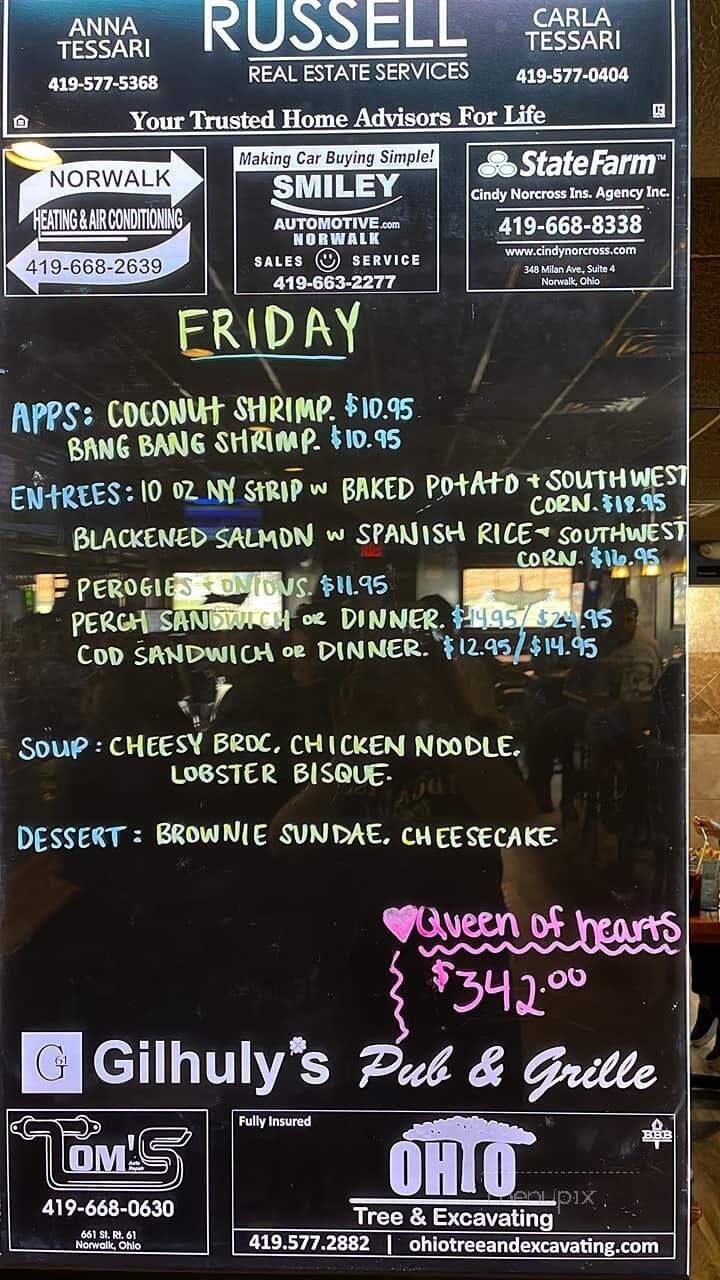 ANNA TESSARI
419-577-5368
RUSSELL
REAL ESTATE SERVICES
CARLA TESSARI
419-577-0404
Your Trusted Home Advisors For Life
NORWALK
HEATING & AIR CONDITIONING
419-668-2639
Making Car Buying Simple!
SMILEY
AUTOMOTIVE.com
NORWALK
SALES SERVICE
419-663-2277
StateFarm™
Cindy Norcross Ins. Agency Inc.
419-668-8338
www.cindynorcross.com
348 Milan Ave., Suite 4
Norwalk, Ohio
FRIDAY
APPS: COCONUT SHRIMP. $10.95
BANG BANG SHRIMP. $10.95
ENTREES: 10 OZ NY STRIP W BAKED POTATO + SOUTHWEST
CORN. $18.95
BLACKENED SALMON W SPANISH RICE + SOUTHWEST
CORN. $16.95
PEROGIES + ONIONS. $11.95
PERCH SANDWICH OR DINNER. $14.95/$24.95
COD SANDWICH OR DINNER. $12.95/$14.95
SOUP: CHEESY BROC. CHICKEN NOODLE.
LOBSTER BISQUE.
DESSERT: BROWNIE SUNDAE. CHEESECAKE
Queen of hearts
$342.00
G61 Gilhuly's Pub & Grille
TOM'S
Auto Repair
419-668-0630
661 St. Rt. 61
Norwalk, Ohio
Fully Insured
BBB
OHIO
Tree & Excavating
419.577.2882 | ohiotreeandexcavating.com
menupix